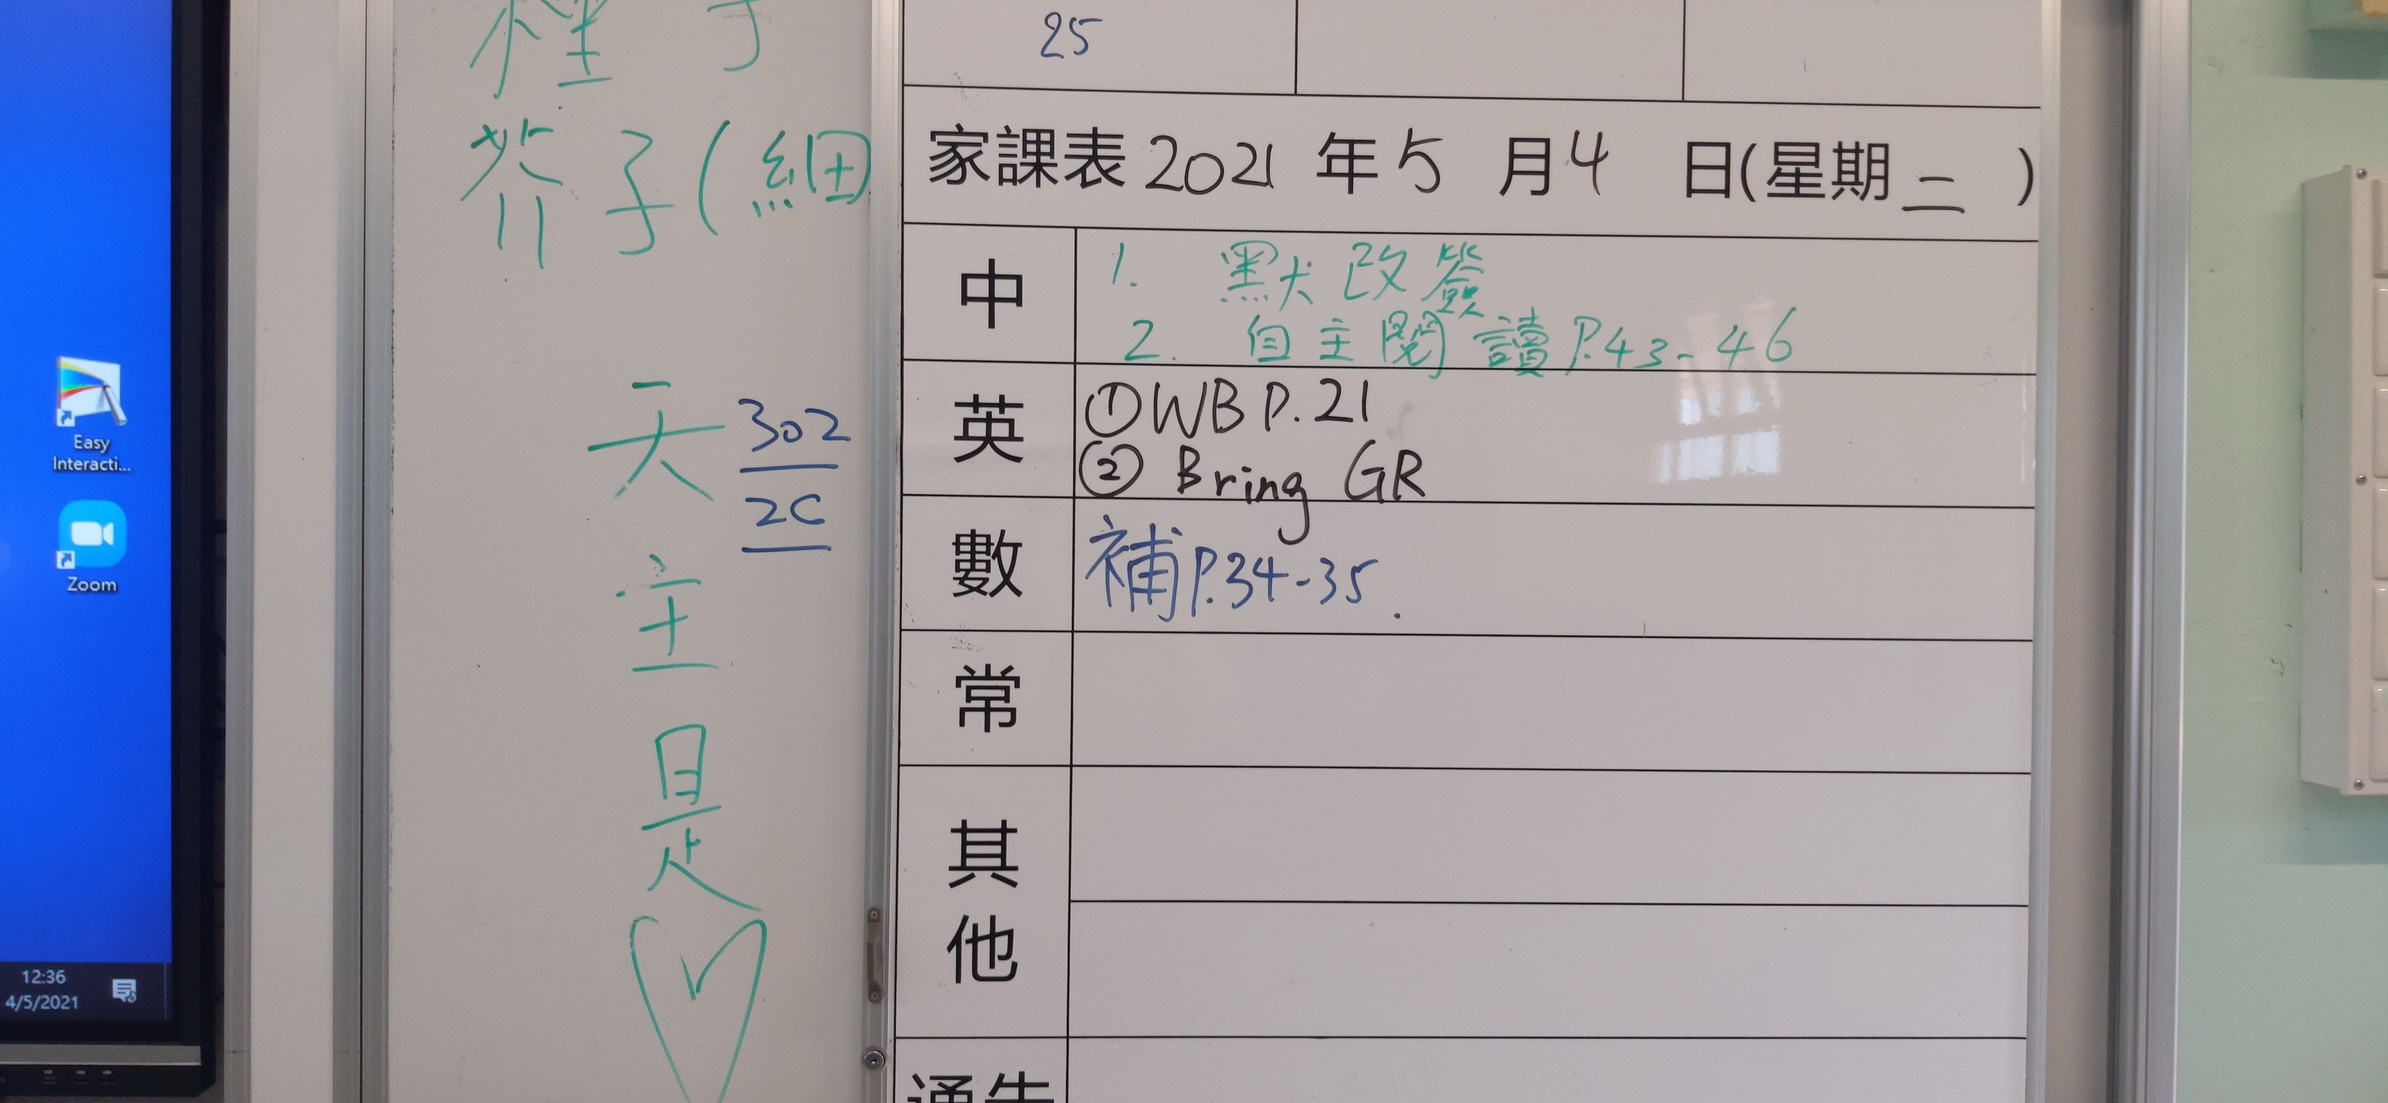 Easy
Interacti...
Zoom
12:36
4/5/2021
種子
芥子(細
302
2C
天
主
是
25
家課表 2021 年 5 月 4 日(星期 二 )
中
1. 默改簽
2. 自主閱讀 P.43-46
英
① WB P.21
② Bring GR
數
補 P.34-35.
常
其
他
通告